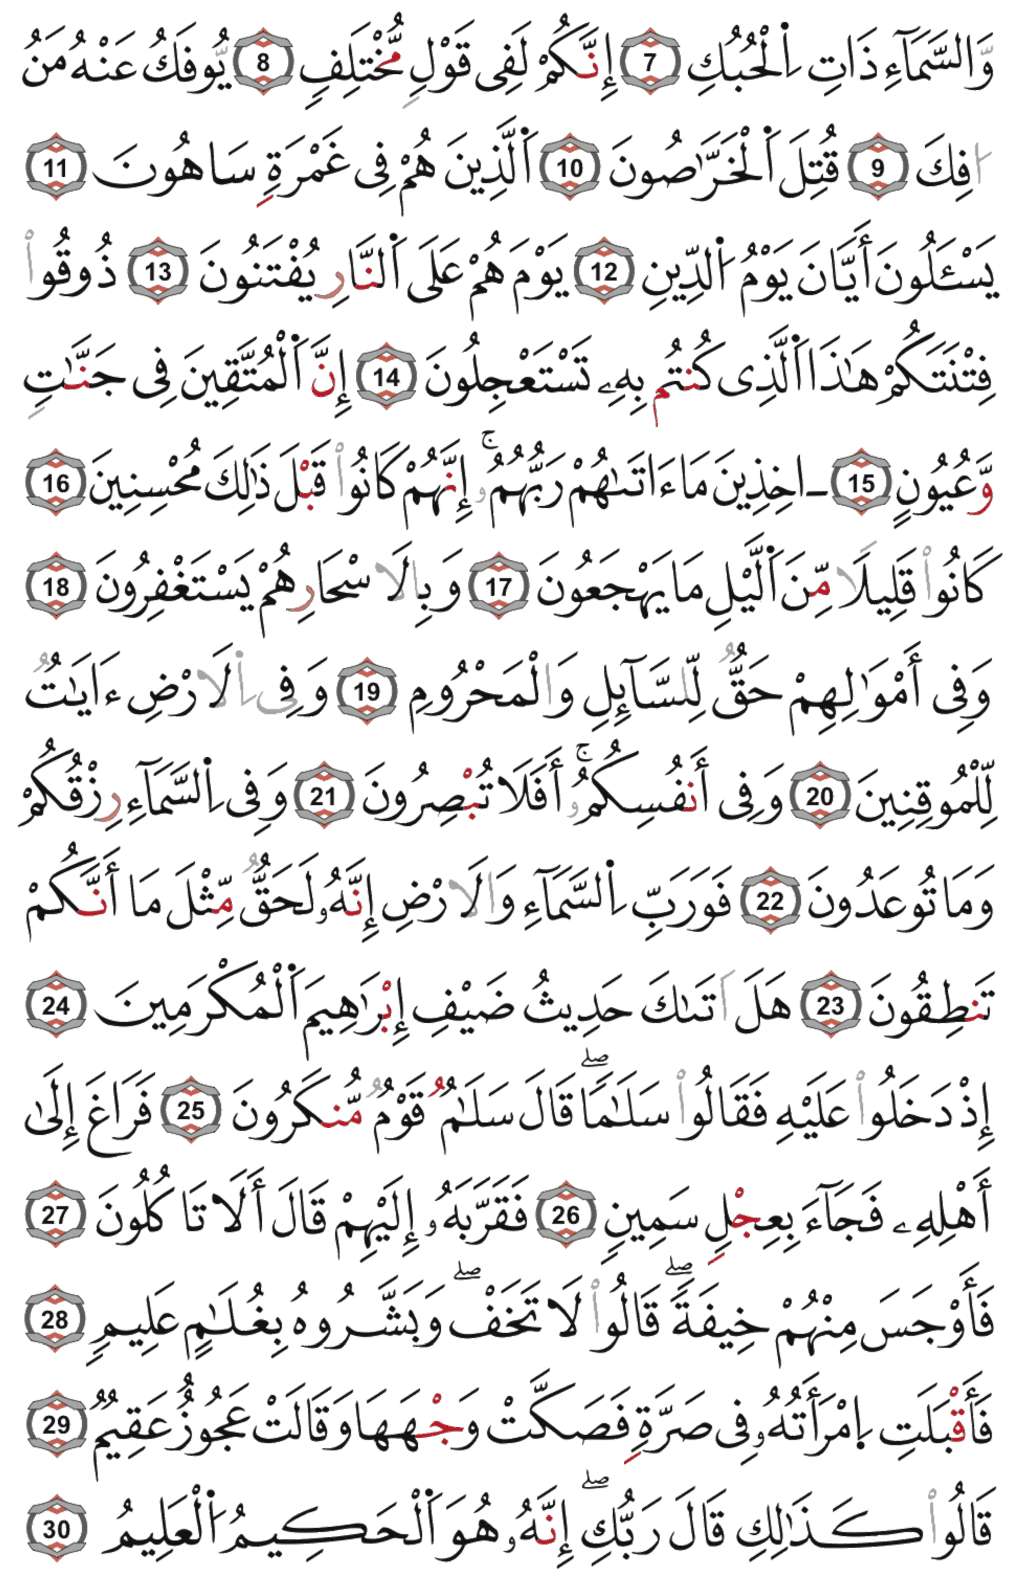 وَالسَّمَآءِ ذَاتِ اِ۬لْحُبُكِ 7 إِنَّكُمْ لَفِى قَوْلٍ مُّخْتَلِفٍ 8 يُّوفَكُ عَنْهُ مَنُ
ا۟فِكَ 9 قُتِلَ اَ۬لْخَرَّٰصُونَ 10 اَ۬لَّذِينَ هُمْ فِى غَمْرَةٍ سَاهُونَ 11
يَسْـَٔلُونَ أَيَّانَ يَوْمُ اُ۬لدِّينِ 12 يَوْمَ هُمْ عَلَى اَ۬لنَّارِ يُفْتَنُونَ 13 ذُوقُواْ
فِتْنَتَكُمْ هَٰذَا اَ۬لَّذِى كُنتُم بِهِۦ تَسْتَعْجِلُونَ 14 إِنَّ اَ۬لْمُتَّقِينَ فِى جَنَّٰتٍ
وَّعُيُونٍ 15 ـ اخِذِينَ مَا ءَاتَىٰهُمْ رَبُّهُمُۥٓ ۚ إِنَّهُمْ كَانُواْ قَبْلَ ذَٰلِكَ مُحْسِنِينَ 16
كَانُواْ قَلِيلًا مِّنَ اَ۬لَّيْلِ مَا يَهْجَعُونَ 17 وَبِالَاسْحَارِ هُمْ يَسْتَغْفِرُونَ 18
وَفِى أَمْوَٰلِهِمْ حَقٌّ لِّلسَّآئِلِ وَالْمَحْرُومِ 19 وَفِى اِ۬لَارْضِ ءَايَٰتٌ
لِّلْمُوقِنِينَ 20 وَفِى أَنفُسِكُمُۥٓ ۚ أَفَلَا تُبْصِرُونَ 21 وَفِى اِ۬لسَّمَآءِ رِزْقُكُمْ
وَمَا تُوعَدُونَ 22 فَوَرَبِّ اِ۬لسَّمَآءِ وَالَارْضِ إِنَّهُۥ لَحَقٌّ مِّثْلَ مَا أَنَّكُمْ
تَنطِقُونَ 23 هَلَ اَتَىٰكَ حَدِيثُ ضَيْفِ إِبْرَٰهِيمَ اَ۬لْمُكْرَمِينَ 24
إِذْ دَخَلُواْ عَلَيْهِ فَقَالُواْ سَلَٰمًا ۖ قَالَ سَلَٰمٌ قَوْمٌ مُّنكَرُونَ 25 فَرَاغَ إِلَىٰ
أَهْلِهِۦ فَجَآءَ بِعِجْلٍ سَمِينٍ 26 فَقَرَّبَهُۥ إِلَيْهِمْ قَالَ أَلَا تَاكُلُونَ 27
فَأَوْجَسَ مِنْهُمْ خِيفَةً ۖ قَالُواْ لَا تَخَفْ ۖ وَبَشَّرُوهُ بِغُلَٰمٍ عَلِيمٍ 28
فَأَقْبَلَتِ اِ۪مْرَأَتُهُۥ فِى صَرَّةٍ فَصَكَّتْ وَجْهَهَا وَقَالَتْ عَجُوزٌ عَقِيمٌ 29
قَالُواْ كَذَٰلِكِ قَالَ رَبُّكِ ۖ إِنَّهُۥ هُوَ اَ۬لْحَكِيمُ اُ۬لْعَلِيمُ 30